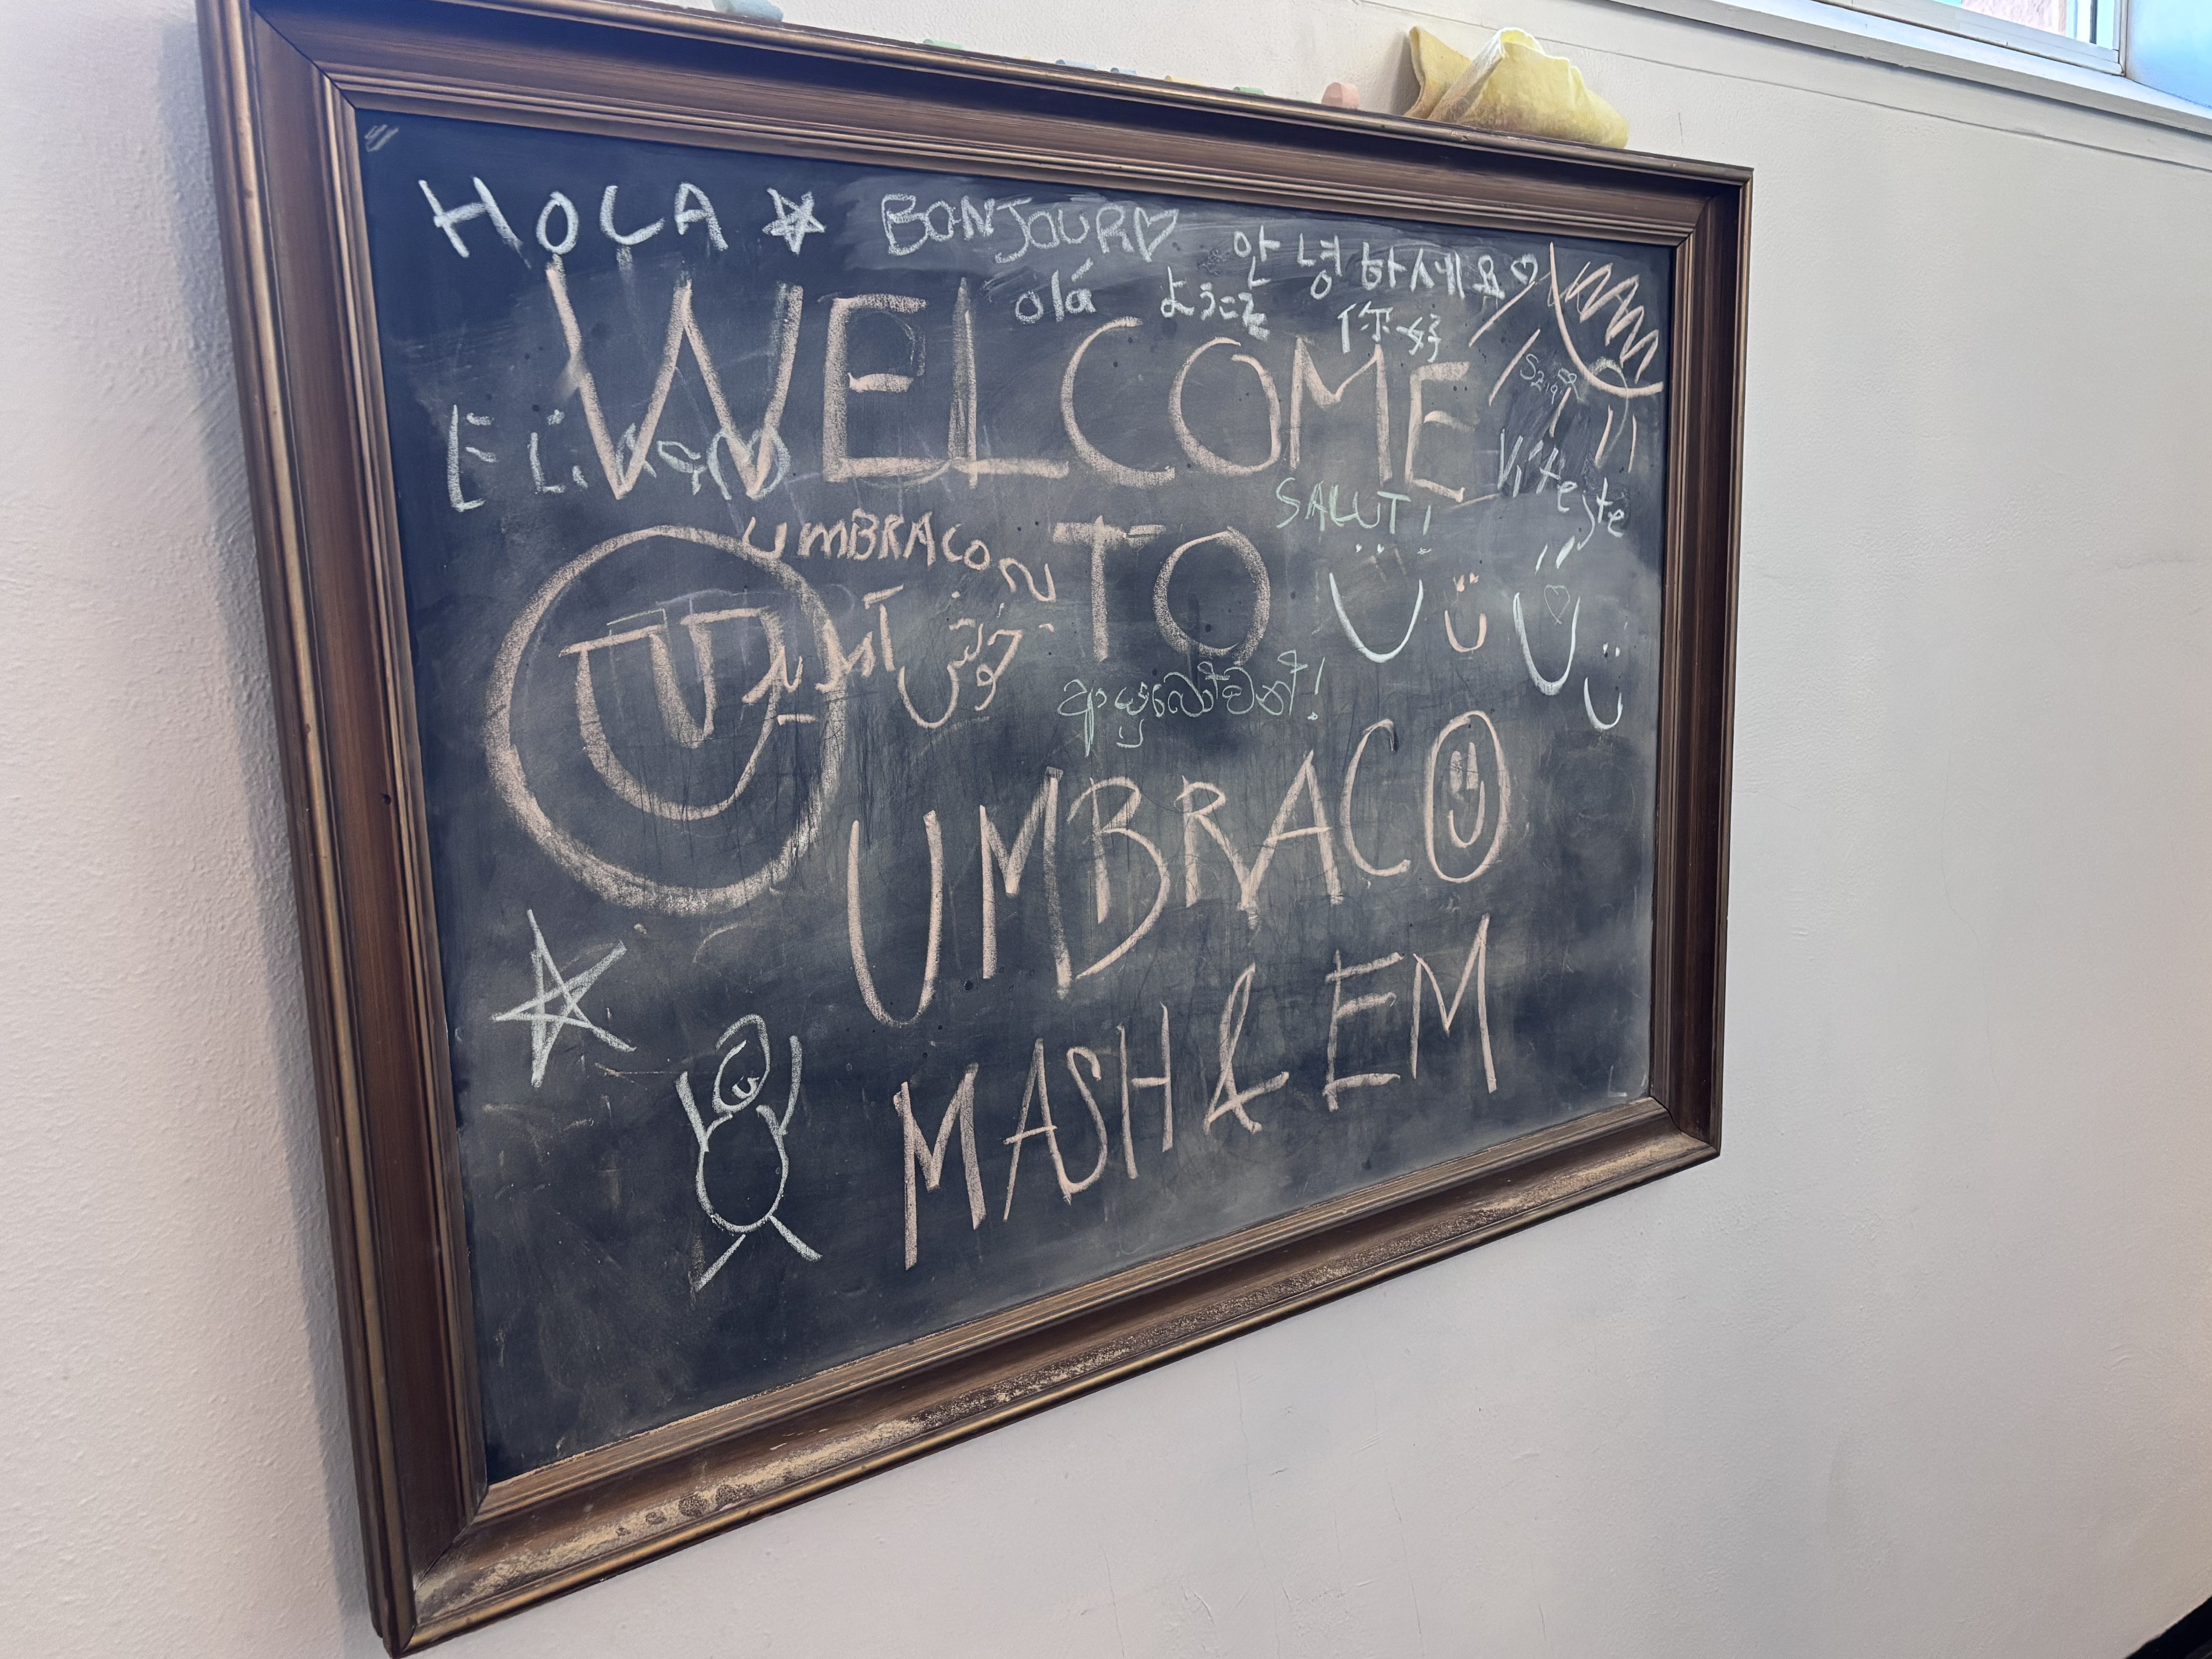 HOLA BONJOUR 안녕하세요
olá ようこそ 你好
WELCOME
Vítejte
SALUT!
UMBRACO
TO
خوش آمدید
ආයුබෝවන්!
UMBRACO
MASH & EM